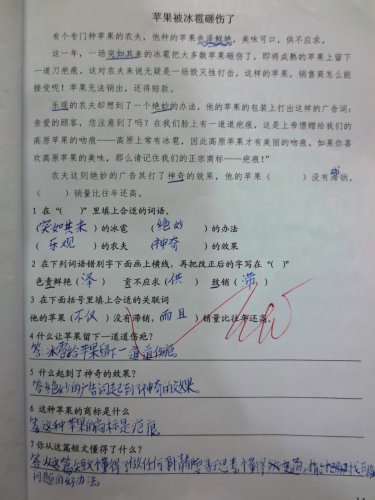 苹果被冰雹砸伤了
有个专门种苹果的农夫，他种的苹果色泽鲜艳，美味可口，供不应求。
这一年，一场突如其来的冰雹把大多数苹果砸伤了，即将成熟的苹果上留下
一道刀疤痕。这对农夫来说无疑是一场毁灭性打击，这样的苹果，销售商怎么能
接受呢！苹果无法销出，还得赔款。
乐观的农夫却想到了一个绝妙的办法，他的苹果的包装上打出这样的广告词：
亲爱的顾客，您注意到了吗？在我们脸上有一道道疤痕，这是上帝馈赠给我们的
高原苹果的吻痕——高原上常有冰雹，因此高原苹果才有美丽的吻痕。如果你喜
欢高原苹果的美味，那么请记住我们的正宗商标——疤痕！”
农夫这则绝妙的广告其打了神奇的效果，他的苹果（ ）没有滞销，
（ ）销量比往年还高。
1 在“（ ）”里填上合适的词语。
（突如其来）的冰雹 （绝妙）的办法
（乐观）的农夫 （神奇）的效果
2 在下列词语错别字下面画上横线，再把改正后的字写在“（）”
色责鲜艳（泽） 贡不应求（供） 致销（滞）
3 在下面括号里填上合适的关联词
他的苹果（不仅）没有滞销，而且）销量比往年还高。
4 什么让苹果留下一道道伤疤？
答：冰雹给苹果留下一道道伤疤
5 什么起到了神奇的效果？
答：绝妙的广告词起到了神奇的效果
6 这种苹果的商标是什么
答：这种苹果的商标是疤痕
7 你从这篇短文懂得了什么？
答：从这篇短文懂得了做任何事
问题的好办法